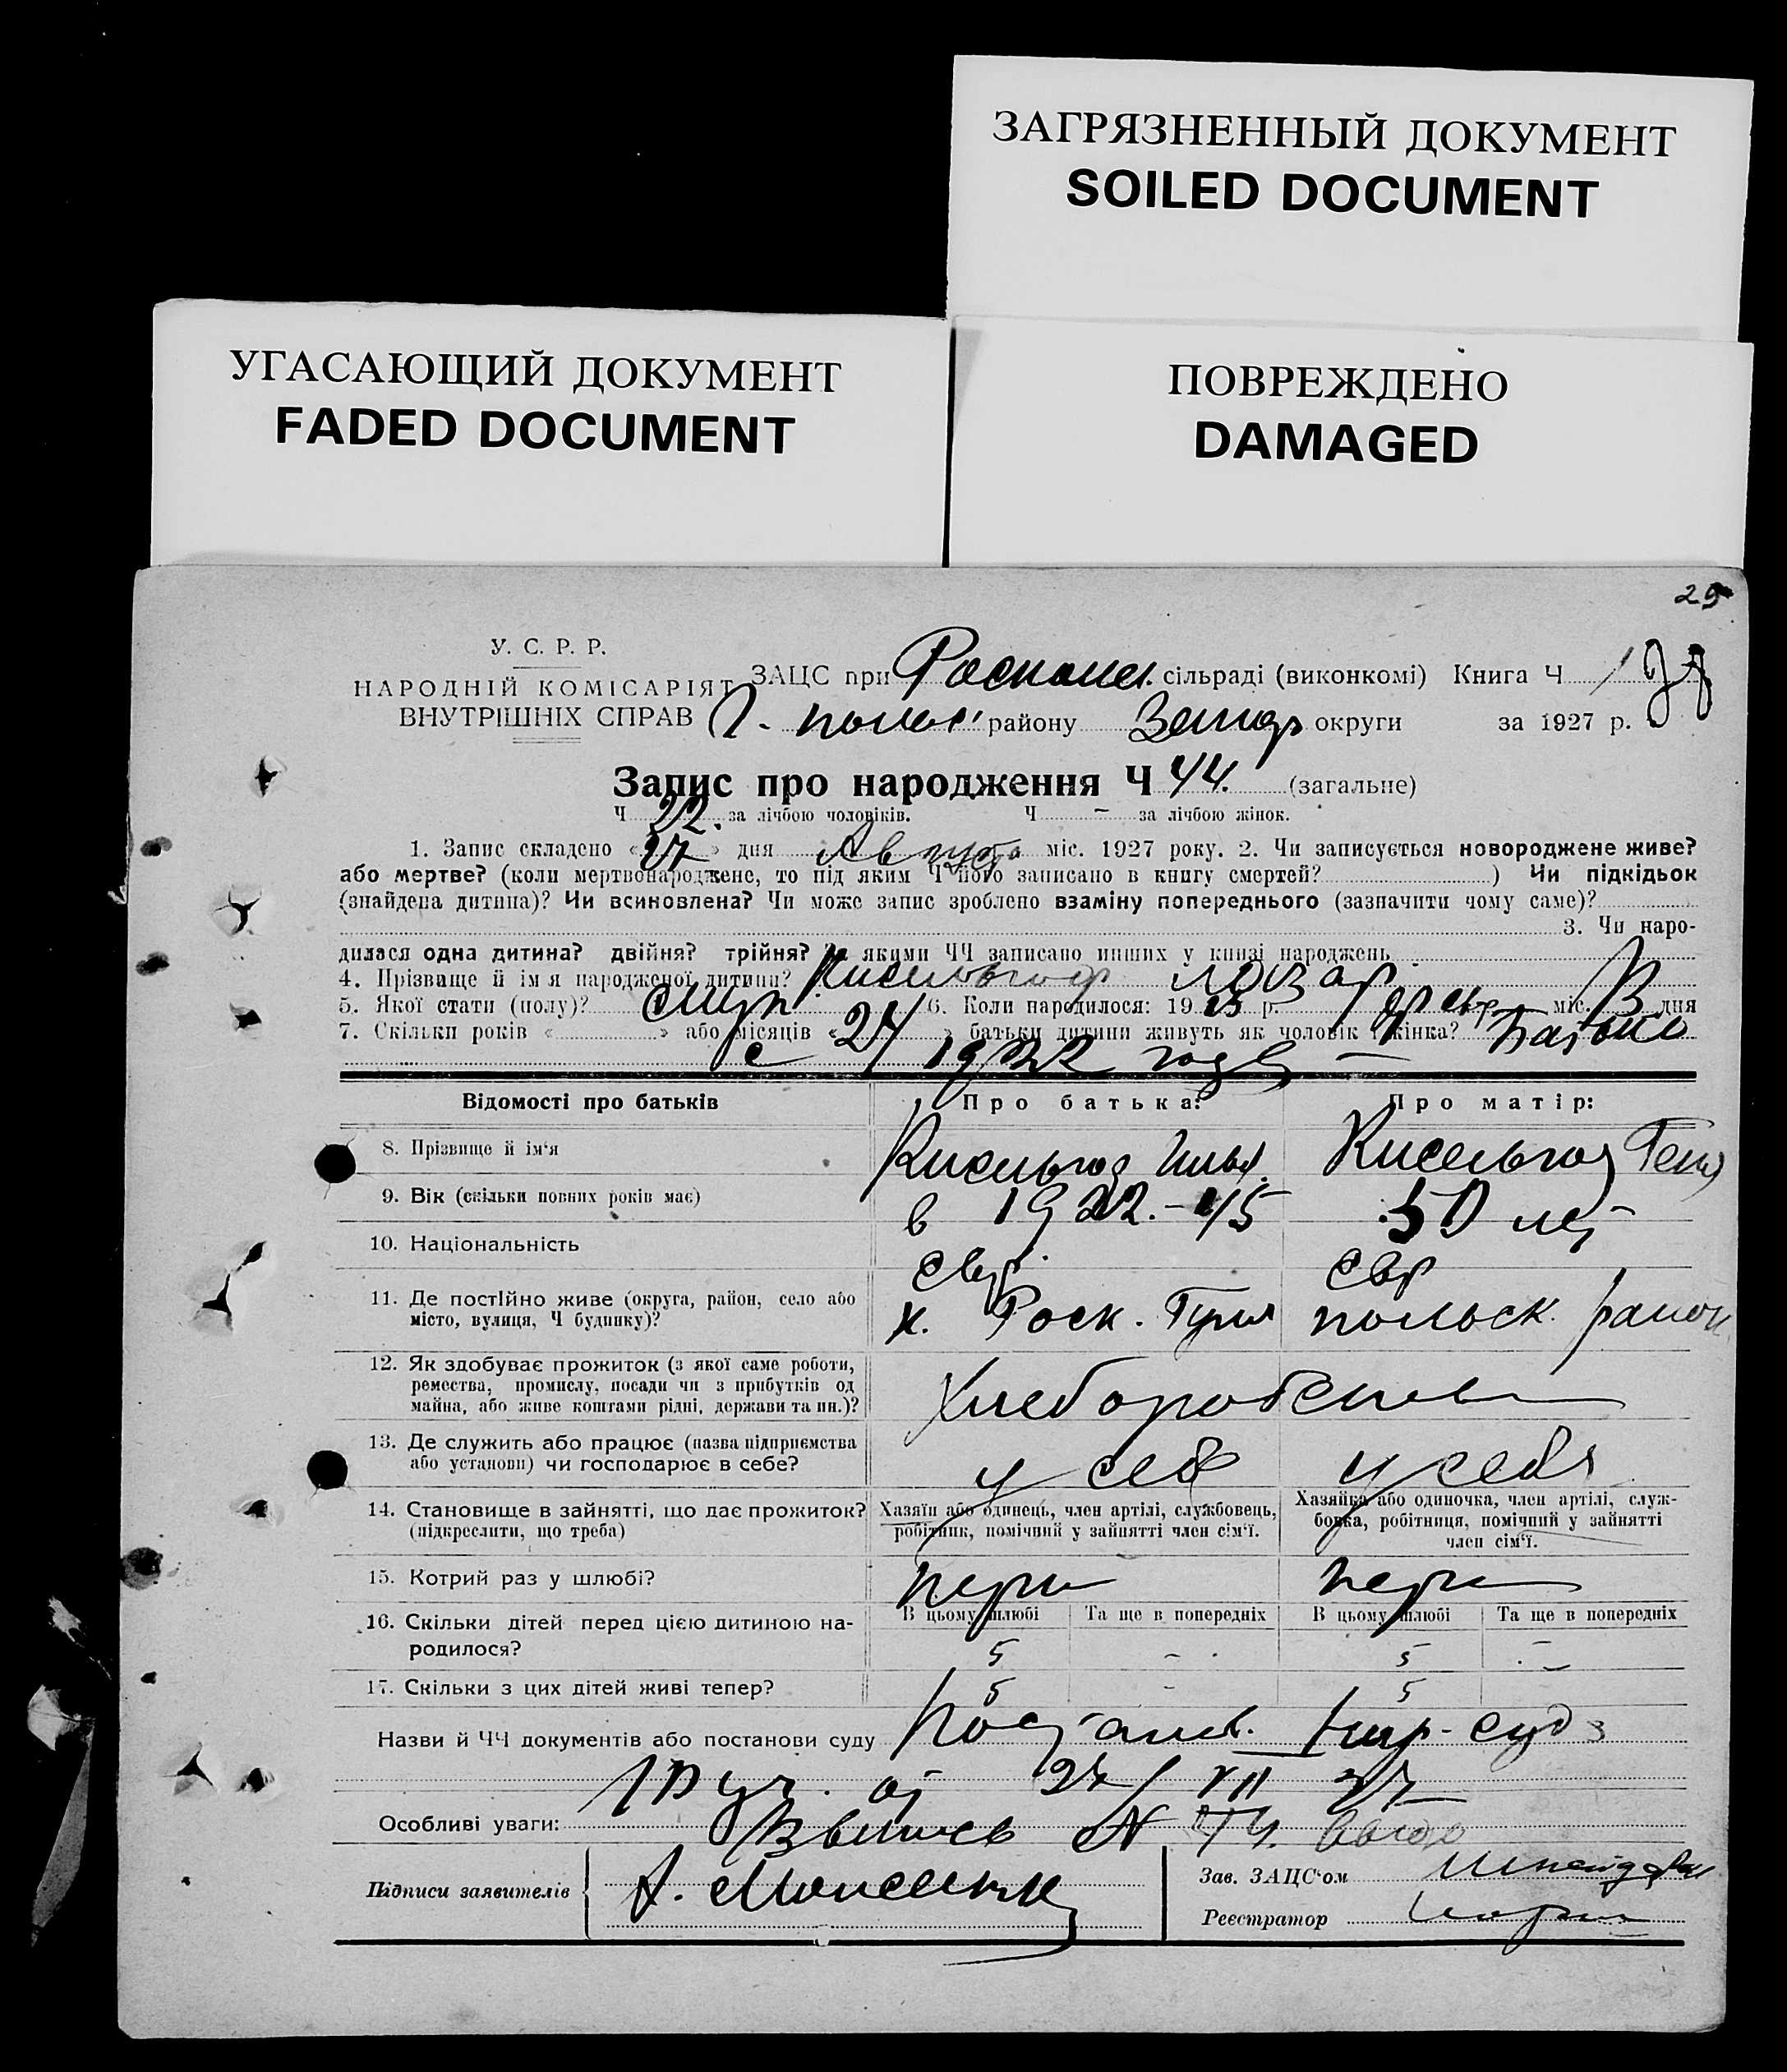 ЗАГРЯЗНЕННЫЙ ДОКУМЕНТ
SOILED DOCUMENT
УГАСАЮЩИЙ ДОКУМЕНТ
FADED DOCUMENT
ПОВРЕЖДЕНО
DAMAGED
29
У. С. Р. Р.
НАРОДНІЙ КОМІСАРІЯТ
ВНУТРІШНІХ СПРАВ
ЗАЦС при сільраді (виконкомі) Книга Ч
району округи за 1927 р.
Запис про народження Ч 44. (загальне)
Ч 22. за лічбою чоловіків. Ч – за лічбою жінок.
1. Запис складено « 27 » дня Августа міс. 1927 року. 2. Чи записується новороджене живе?
або мертве? (коли мертвонароджене, то під яким Ч його записано в книгу смертей? ) Чи підкідьок
(знайдена дитина)? Чи всиновлена? Чи може запис зроблено взаміну попереднього (зазначити чому саме)?
3. Чи наро-
дилася одна дитина? двійня? трійня? якими ЧЧ записано инших у книзі народжень
4. Прізвище й ім'я народженої дитини? Кисельгоф Лазар
5. Якої стати (полу)? 6. Коли народилося: 19 р. міс. дня
7. Скільки років « » або місяців « » батьки дитини живуть як чоловік жінка?
с 1922 года
Відомості про батьків Про батька: Про матір:
8. Прізвище й ім'я Кисельгоф Илья. Кисельгоф Геня
9. Вік (скільки повних років має) в 1922.-45 50 лет
10. Національність евр. евр
11. Де постійно живе (округа, район, село або
місто, вулиця, Ч будинку)? к. Роск. Гуля польск. район
12. Як здобуває прожиток (з якої саме роботи,
ремества, промислу, посади чи з прибутків од
майна, або живе коштами рідні, держави та ин.)?
13. Де служить або працює (назва підприємства
або установи) чи господарює в себе? у себя у себя
14. Становище в зайнятті, що дає прожиток?
(підкреслити, що треба)
Хазяїн або одинець, член артілі, службовець,
робітник, помічний у зайнятті член сім'ї.
Хазяйка або одиночка, член артілі, служ-
бовка, робітниця, помічний у зайнятті
член сім'ї.
15. Котрий раз у шлюбі? перв перв
В цьому шлюбі Та ще в попередніх В цьому шлюбі Та ще в попередніх
16. Скільки дітей перед цією дитиною на-
родилося? 5 – 5 –
17. Скільки з цих дітей живі тепер? 5 – 5
Назви й ЧЧ документів або постанови суду Постанов. нар-суда
уч. от VII 27
Особливі уваги: Выпись N 44.
Підписи заявителів
Зав. ЗАЦС'ом
Реєстратор